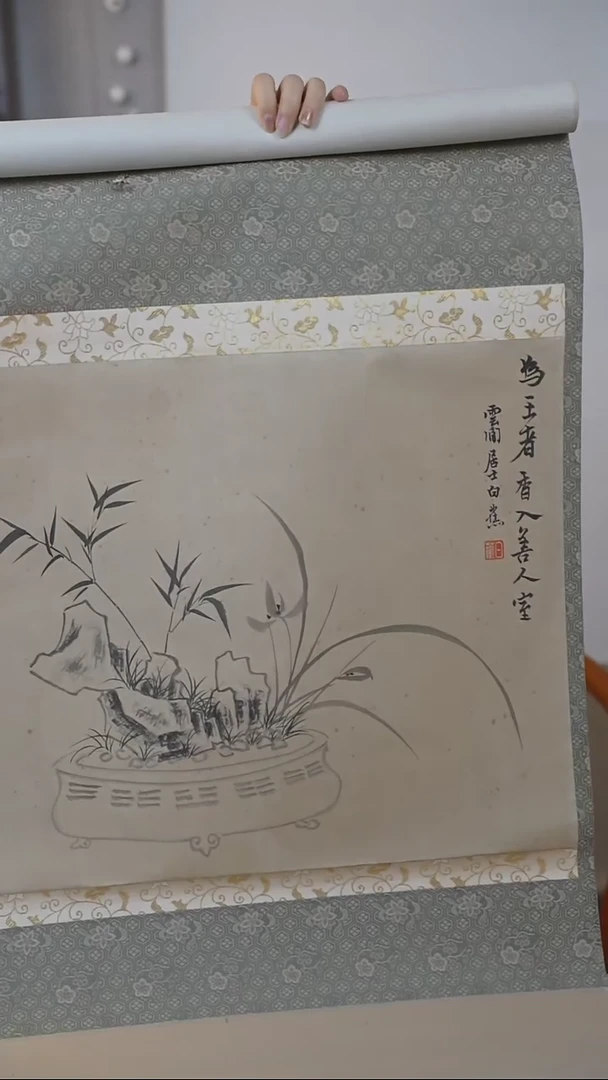 為王者香入善人室
雲間居士白蕉